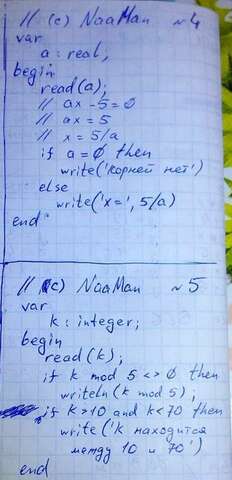 // (c) NaaMan №4
var
a : real,
begin
read(a);
// ax - 5 = 0
// ax = 5
// x = 5/a
if a = 0 then
write('корней нет')
else
write('x=', 5/a)
end
// (c) NaaMan №5
var
k : integer;
begin
read(k);
if k mod 5 <> 0 then
writeln(k mod 5);
if k > 10 and k < 70 then
write('k находится
между 10 и 70')
end